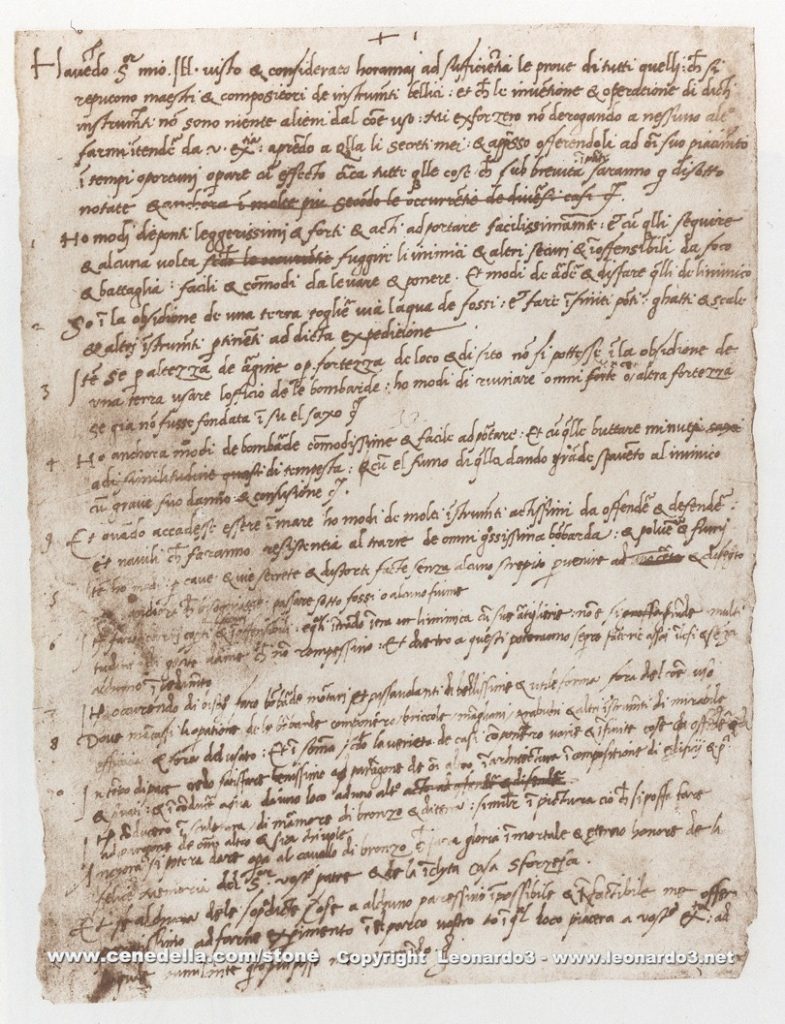 Havẽdo S.or mio Ill. visto & considerato horamaj ad sufficiẽtia le prove di tutti quelli ch̃ si
reputono maestri & compositori de instrumẽti bellici: et ch̃ le invẽtione & operatione di dicti
instrumẽti nõ sono niente alieni dal cõe uso: Mi exforzero nõ derogando a nessuno
farmi ĩtendẽ da v. ex.tia: aprẽdo a q̃lla li secreti mei: & app̃sso offerendoli ad suo piacimẽto
ĩ tempi oportunj operare cũ effecto tutte q̃lle cose ch̃ sub brevita saranno q̃ disotto
notate & anchora ĩ molte piu secõdo le occurrentie de diversi casi
Ho modi de ponti leggerissimj & forti & acti ad portare facilissimamẽt: & cũ q̃lli seguire
& alcuna volta secõdo le occurrentie fuggire li inimici & altri securi & ĩoffensibili da foco
& battaglia: facili & cõmodi da levare & ponere. Et modi de & disfare q̃lli de linimico
2 So ĩ la obsidione de una terra toglier via laqua de fossi: & fare ĩfiniti põti ghatti & scale
& altri ĩstrumẽti ptinenti ad dicta expeditione
3 Itẽ se p altezza de argine o p fortezza de loco & di sito nõ si potesse ĩ la obsidione de
una terra usare lofficio de le bombarde: ho modi di ruinare omni forte o altra fortezza
se gia nõ fusse fondata ĩ su el saxo
4 Ho anchora modi de bombarde cõmodissime & facile ad portare: Et cũ q̃lle buttare minuti saxi
a di similitudine quasi di tempesta: & cũ el fumo di q̃lla dando grãde spavẽto al inimico
cũ grave suo danno & confusione
9 Et quãdo accadesse essere ĩ mare ho modi de molti ĩstrumẽti actissimi da offendẽ & defendẽ:
et navili ch̃ faranno resistentia al trarre de omni grossissima bõbarda: & polvẽ & fumj
5 Itẽ ho modi p cave & vie secrete & distorte facte senza alcuno strepito pvenire ad & disegnato
anchora ch̃ bisognasse passare sotto fossi o alcuno fiume
6 Itẽ faro carri coperti & ĩoffensibili: e q̃li ĩtrãdo ĩtra linimica cũ sue artiglierie nõ e si multi
tudine di gente darme ch̃ nõ rompessino: Et dietro a questi poteranno seguire fãterie assai ĩlesi & senza
alchuno ĩpedimẽto
7 Itẽ occurrendo di bisogno faro bõbarde mortari & passavolanti di bellissime & utile forme fora del cõe uso
8 Dove mãcassi la operatione de le bõbarde componero briccole mangani trabuchi & altri ĩstrumẽti di mirabile
efficacia & fora del usato: Et ĩ somma secõdo la varieta de casi componero varie & ĩfinite cose da offendẽ
10 In tẽpo di pace credo satisfare benissimo ad paragone de õni altro ĩ architectura ĩ compositione di edificij &
& privati: & ĩ conducẽ aqua da uno loco ad uno altro acto ad offendẽ & difendẽ
Itẽ conducero ĩ sculptura di marmore di bronzo & di terra: similiter ĩ pictura cio ch̃ si possa fare
ad paragone de omni altro & sia chi vole
Ancora si potera dare opera al cavallo di bronzo ch̃ sara gloria ĩmortale & eterno honore de la
felice memoria del S.or vostro patre & de la ĩclyta casa Sforzesca.
Et se alchuna de le sopradicte cose a alchuno paressino ĩpossibile & ĩfactibile me offero
paratissimo ad farne experimento ĩ el parco vostro o ĩ q̃l loco piacera a vostra ex.tia ad
www.cenedella.com/stone Copyright Leonardo3 - www.leonardo3.net